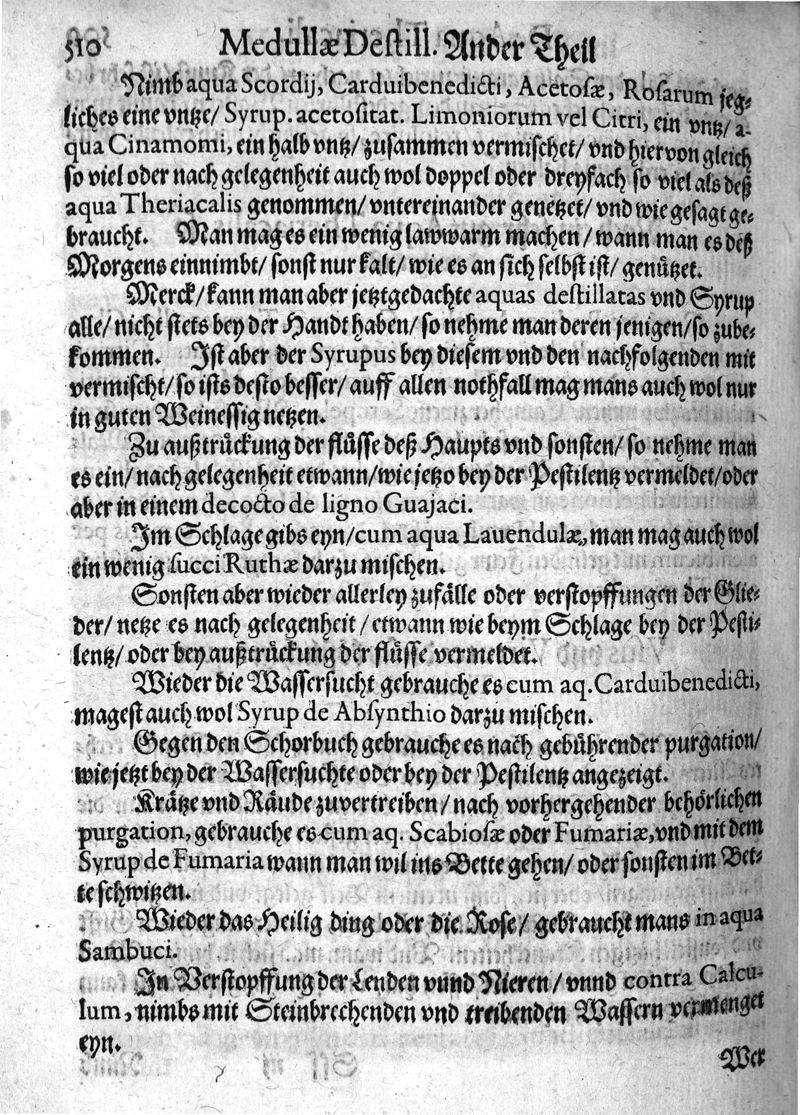 510 Medullæ Destill. Ander Theil
Nimb aqua Scordij, Carduibenedicti, Acetosæ, Rosarum jeg-
liches eine vntze/ Syrup. acetositat. Limoniorum vel Citri, ein vntz/ a-
qua Cinamomi, ein halb vntz/ zusammen vermischet/ vnd hiervon gleich
so viel oder nach gelegenheit auch wol doppel oder dreyfach so viel als deß
aqua Theriacalis genommen/ vntereinander genetzet/ vnd wie gesagt ge-
braucht. Man mag es ein wenig lawwarm machen/ wann man es deß
Morgens einnimbt/ sonst nur kalt/ wie es an sich selbst ist/ genützet.
Merck/ kann man aber jetztgedachte aquas destillatas vnd Syrup
alle/ nicht stets bey der Handt haben/ so nehme man deren jenigen/ so zube-
kommen. Ist aber der Syrupus bey diesem vnd den nachfolgenden mit
vermischt/ so ists desto besser/ auff allen nothfall mag mans auch wol nur
in guten Weinessig netzen.
Zu außtrückung der flüsse deß Haupts vnd sonsten/ so nehme man
es ein/ nach gelegenheit etwann/ wie jetzo bey der Pestilentz vermeldet/ oder
aber in einem decocto de ligno Guajaci.
Im Schlage gibs eyn/ cum aqua Lauendulæ, man mag auch wol
ein wenig succi Ruthæ darzu mischen.
Sonsten aber wieder allerley zufälle oder verstopffungen der Glie-
der/ netze es nach gelegenheit/ etwann wie beym Schlage bey der Pesti-
lentz/ oder bey außtrückung der flüsse vermeldet.
Wieder die Wassersucht gebrauche es cum aq. Carduibenedicti,
magest auch wol Syrup de Absynthio darzu mischen.
Gegen den Schorbuch gebrauche es nach gebührender purgation/
wie jetzt bey der Wassersuchte oder bey der Pestilentz angezeigt.
Krätze vnd Räude zuvertreiben/ nach vorhergehender behörlichen
purgation, gebrauche es cum aq. Scabiosæ oder Fumariæ, vnd mit dem
Syrup de Fumaria wann man wil ins Bette gehen/ oder sonsten im Bet-
te schwitzen.
Wieder das Heilig ding oder die Rose/ gebraucht mans in aqua
Sambuci.
In Verstopffung der Lenden vnnd Nieren/ vnnd contra Calcu-
lum, nimbs mit Steinbrechenden vnd treibenden Wassern vermenget
eyn.
Wer